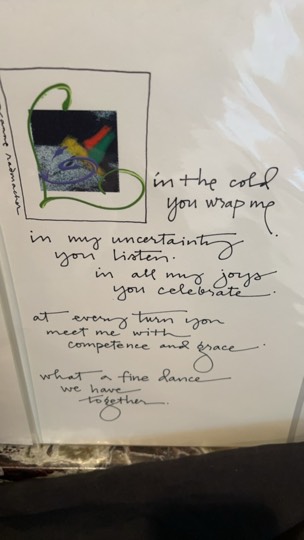 in the cold
you wrap me
in my uncertainty
you listen.
in all my joys
you celebrate.
at every turn you
meet me with
competence and grace.
what a fine dance
we have
together.
radmacher